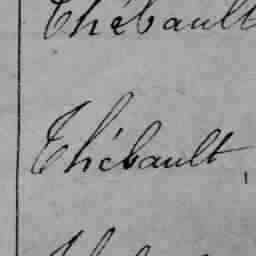 Thébault
Thébault,